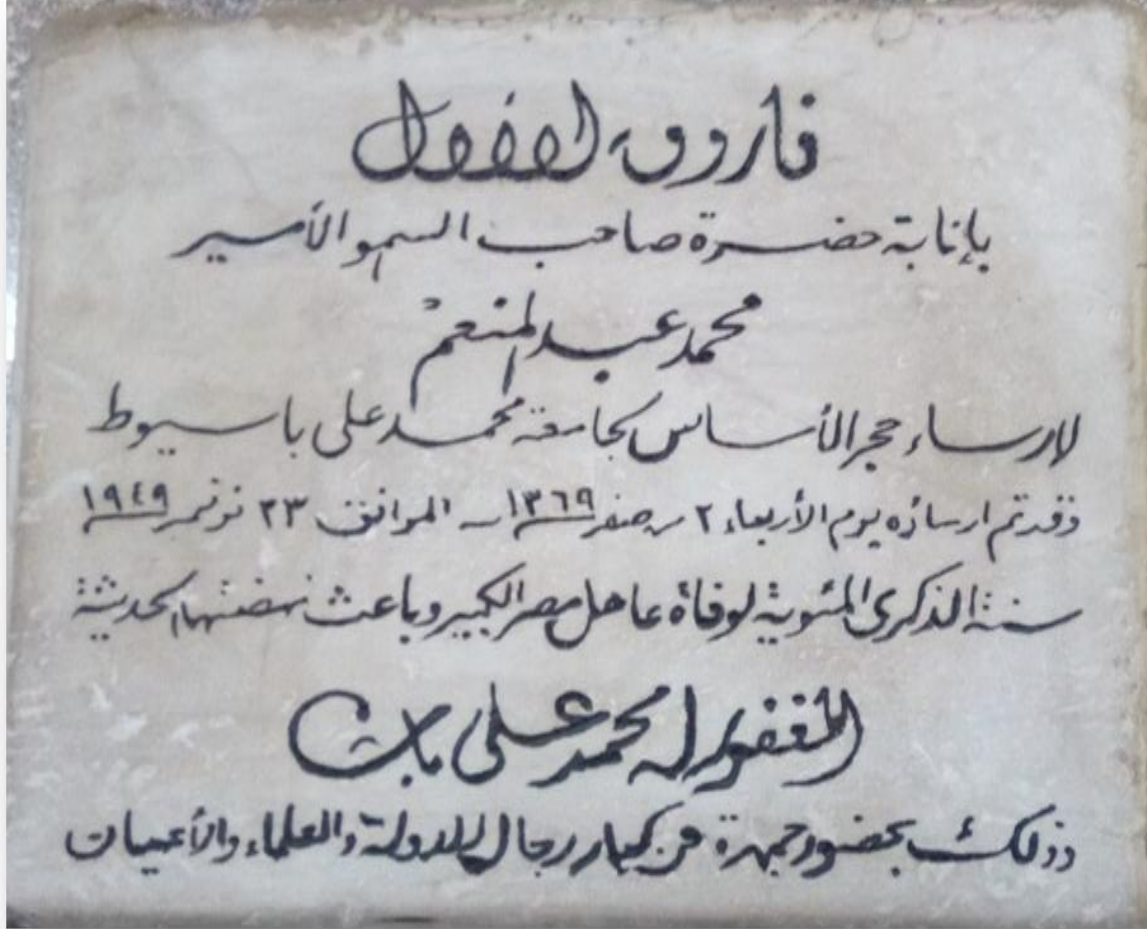 فاروق الأول
بإنابة حضرة صاحب السمو الأمير
محمد عبد المنعم
لارساء حجر الأساس لجامعة محمد على باسيوط
وقد تم ارساؤه يوم الأربعاء ٢ صفر ١٣٦٩ - الموافق ٢٣ نوفمبر ١٩٤٩
سنة الذكرى المئوية لوفاة عاهل مصر الكبير وباعث نهضتها الحديثة
المغفور له محمد على باشا
وذلك بحضور جمهرة من كبار رجال الدولة والعلماء والأعيان